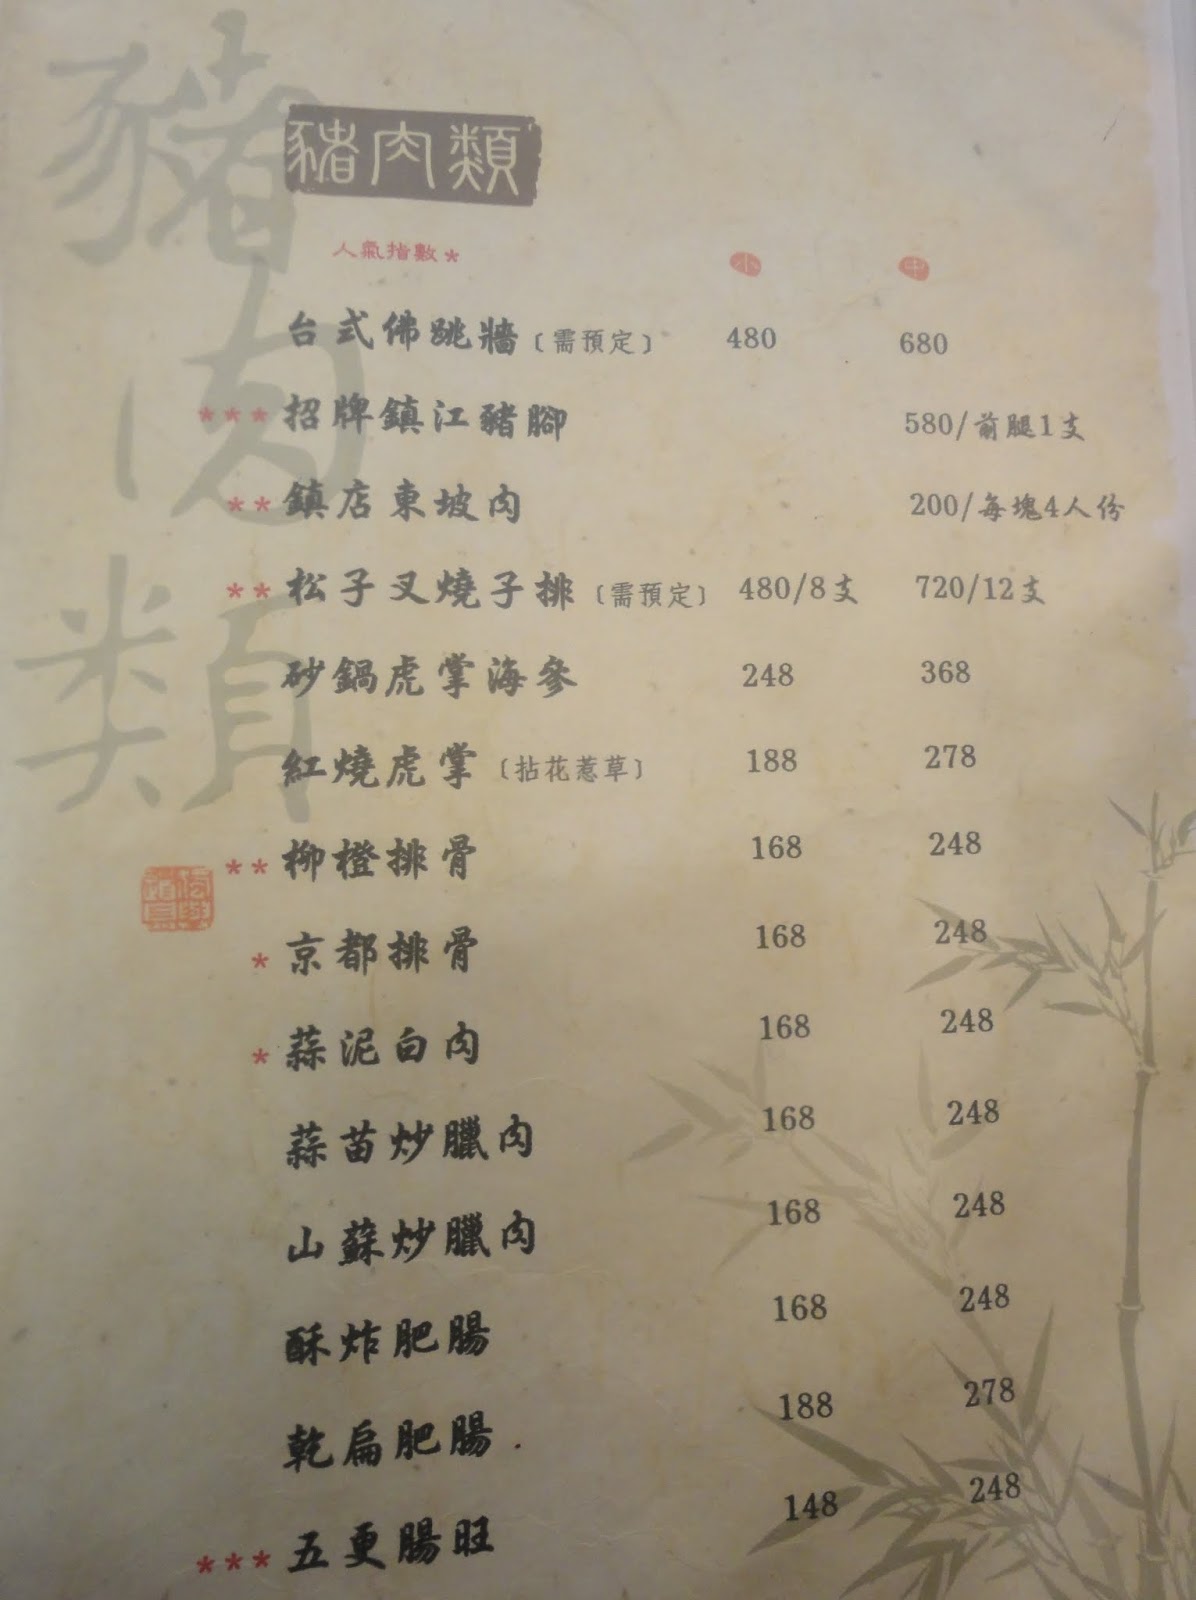 豬肉類
豬肉類
人氣指數* 小 中
台式佛跳牆〔需預定〕 480 680
***招牌鎮江豬腳 580/前腿1支
**鎮店東坡肉 200/每塊4人份
**松子叉燒子排〔需預定〕 480/8支 720/12支
砂鍋虎掌海參 248 368
紅燒虎掌〔拈花惹草〕 188 278
**柳橙排骨 168 248
*京都排骨 168 248
*蒜泥白肉 168 248
蒜苗炒臘肉 168 248
山蘇炒臘肉 168 248
酥炸肥腸 168 248
乾扁肥腸 188 278
***五更腸旺 148 248